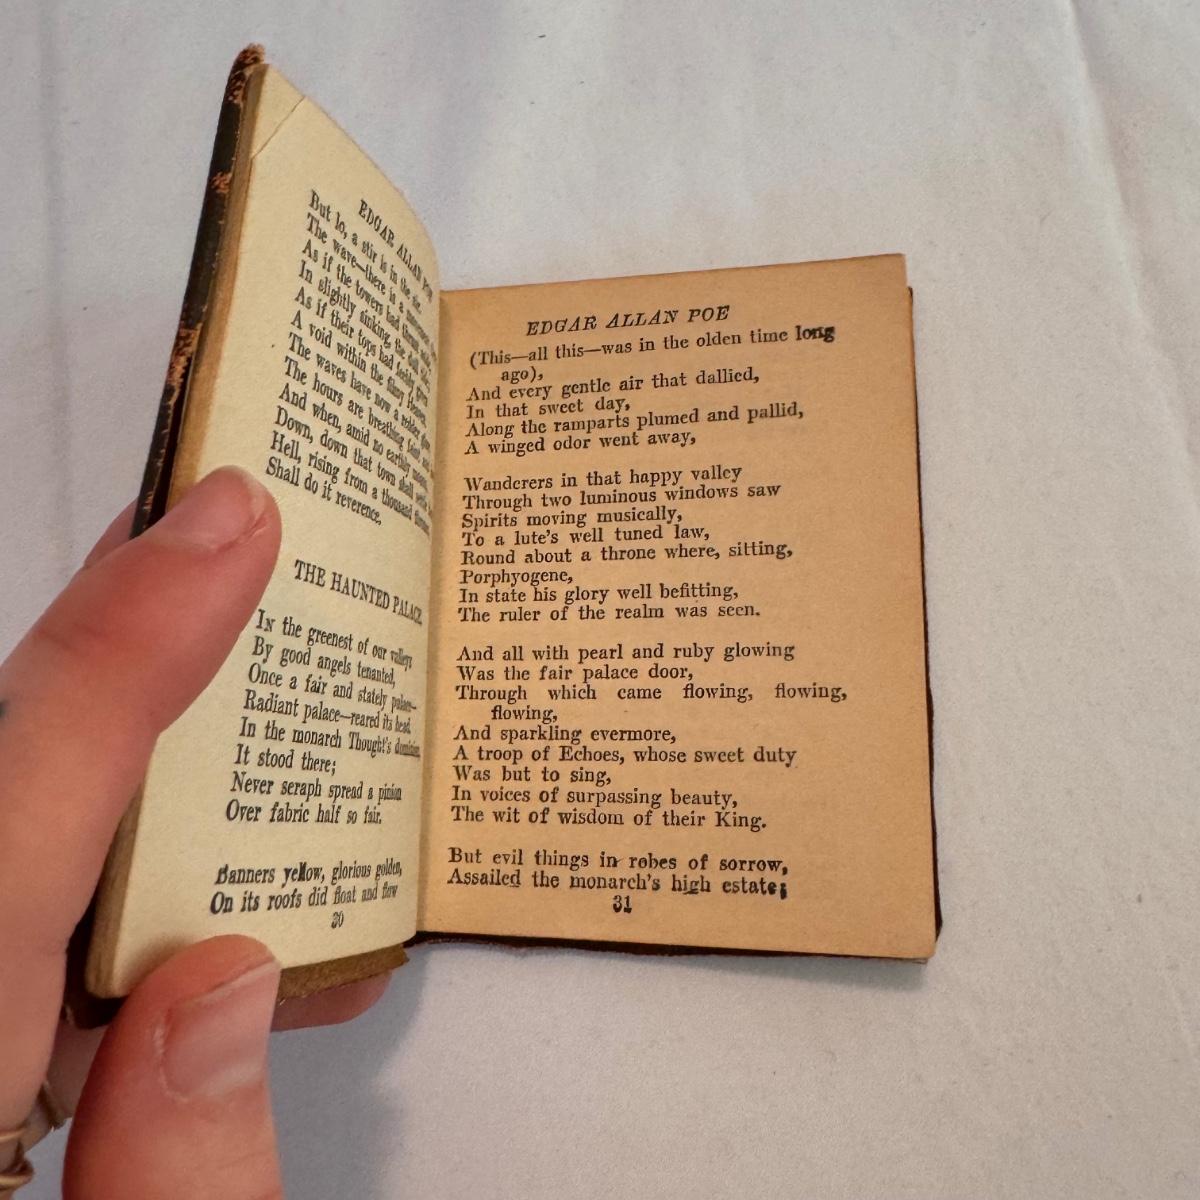 EDGAR ALLAN POE
But lo, a stir is in the air.
The wave—there is a movement
As if the towers had thrust aside,
In slightly sinking, the dull tide,
As if their tops had feebly given
A void within the filmy Heaven.
The waves have now a redder glow
The hours are breathing faint and
And when, amid no earthly moans,
Down, down that town shall settle
Hell, rising from a thousand thrones
Shall do it reverence.
THE HAUNTED PALACE.
IN the greenest of our valleys
By good angels tenanted,
Once a fair and stately palace—
Radiant palace—reared its head.
In the monarch Thought's dominion
It stood there;
Never seraph spread a pinion
Over fabric half so fair.
Banners yellow, glorious golden,
On its roofs did float and flow
30
EDGAR ALLAN POE
(This—all this—was in the olden time long
ago),
And every gentle air that dallied,
In that sweet day,
Along the ramparts plumed and pallid,
A winged odor went away,
Wanderers in that happy valley
Through two luminous windows saw
Spirits moving musically,
To a lute's well tuned law,
Round about a throne where, sitting,
Porphyogene,
In state his glory well befitting,
The ruler of the realm was seen.
And all with pearl and ruby glowing
Was the fair palace door,
Through which came flowing, flowing,
flowing,
And sparkling evermore,
A troop of Echoes, whose sweet duty
Was but to sing,
In voices of surpassing beauty,
The wit of wisdom of their King.
But evil things in robes of sorrow,
Assailed the monarch's high estate;
31